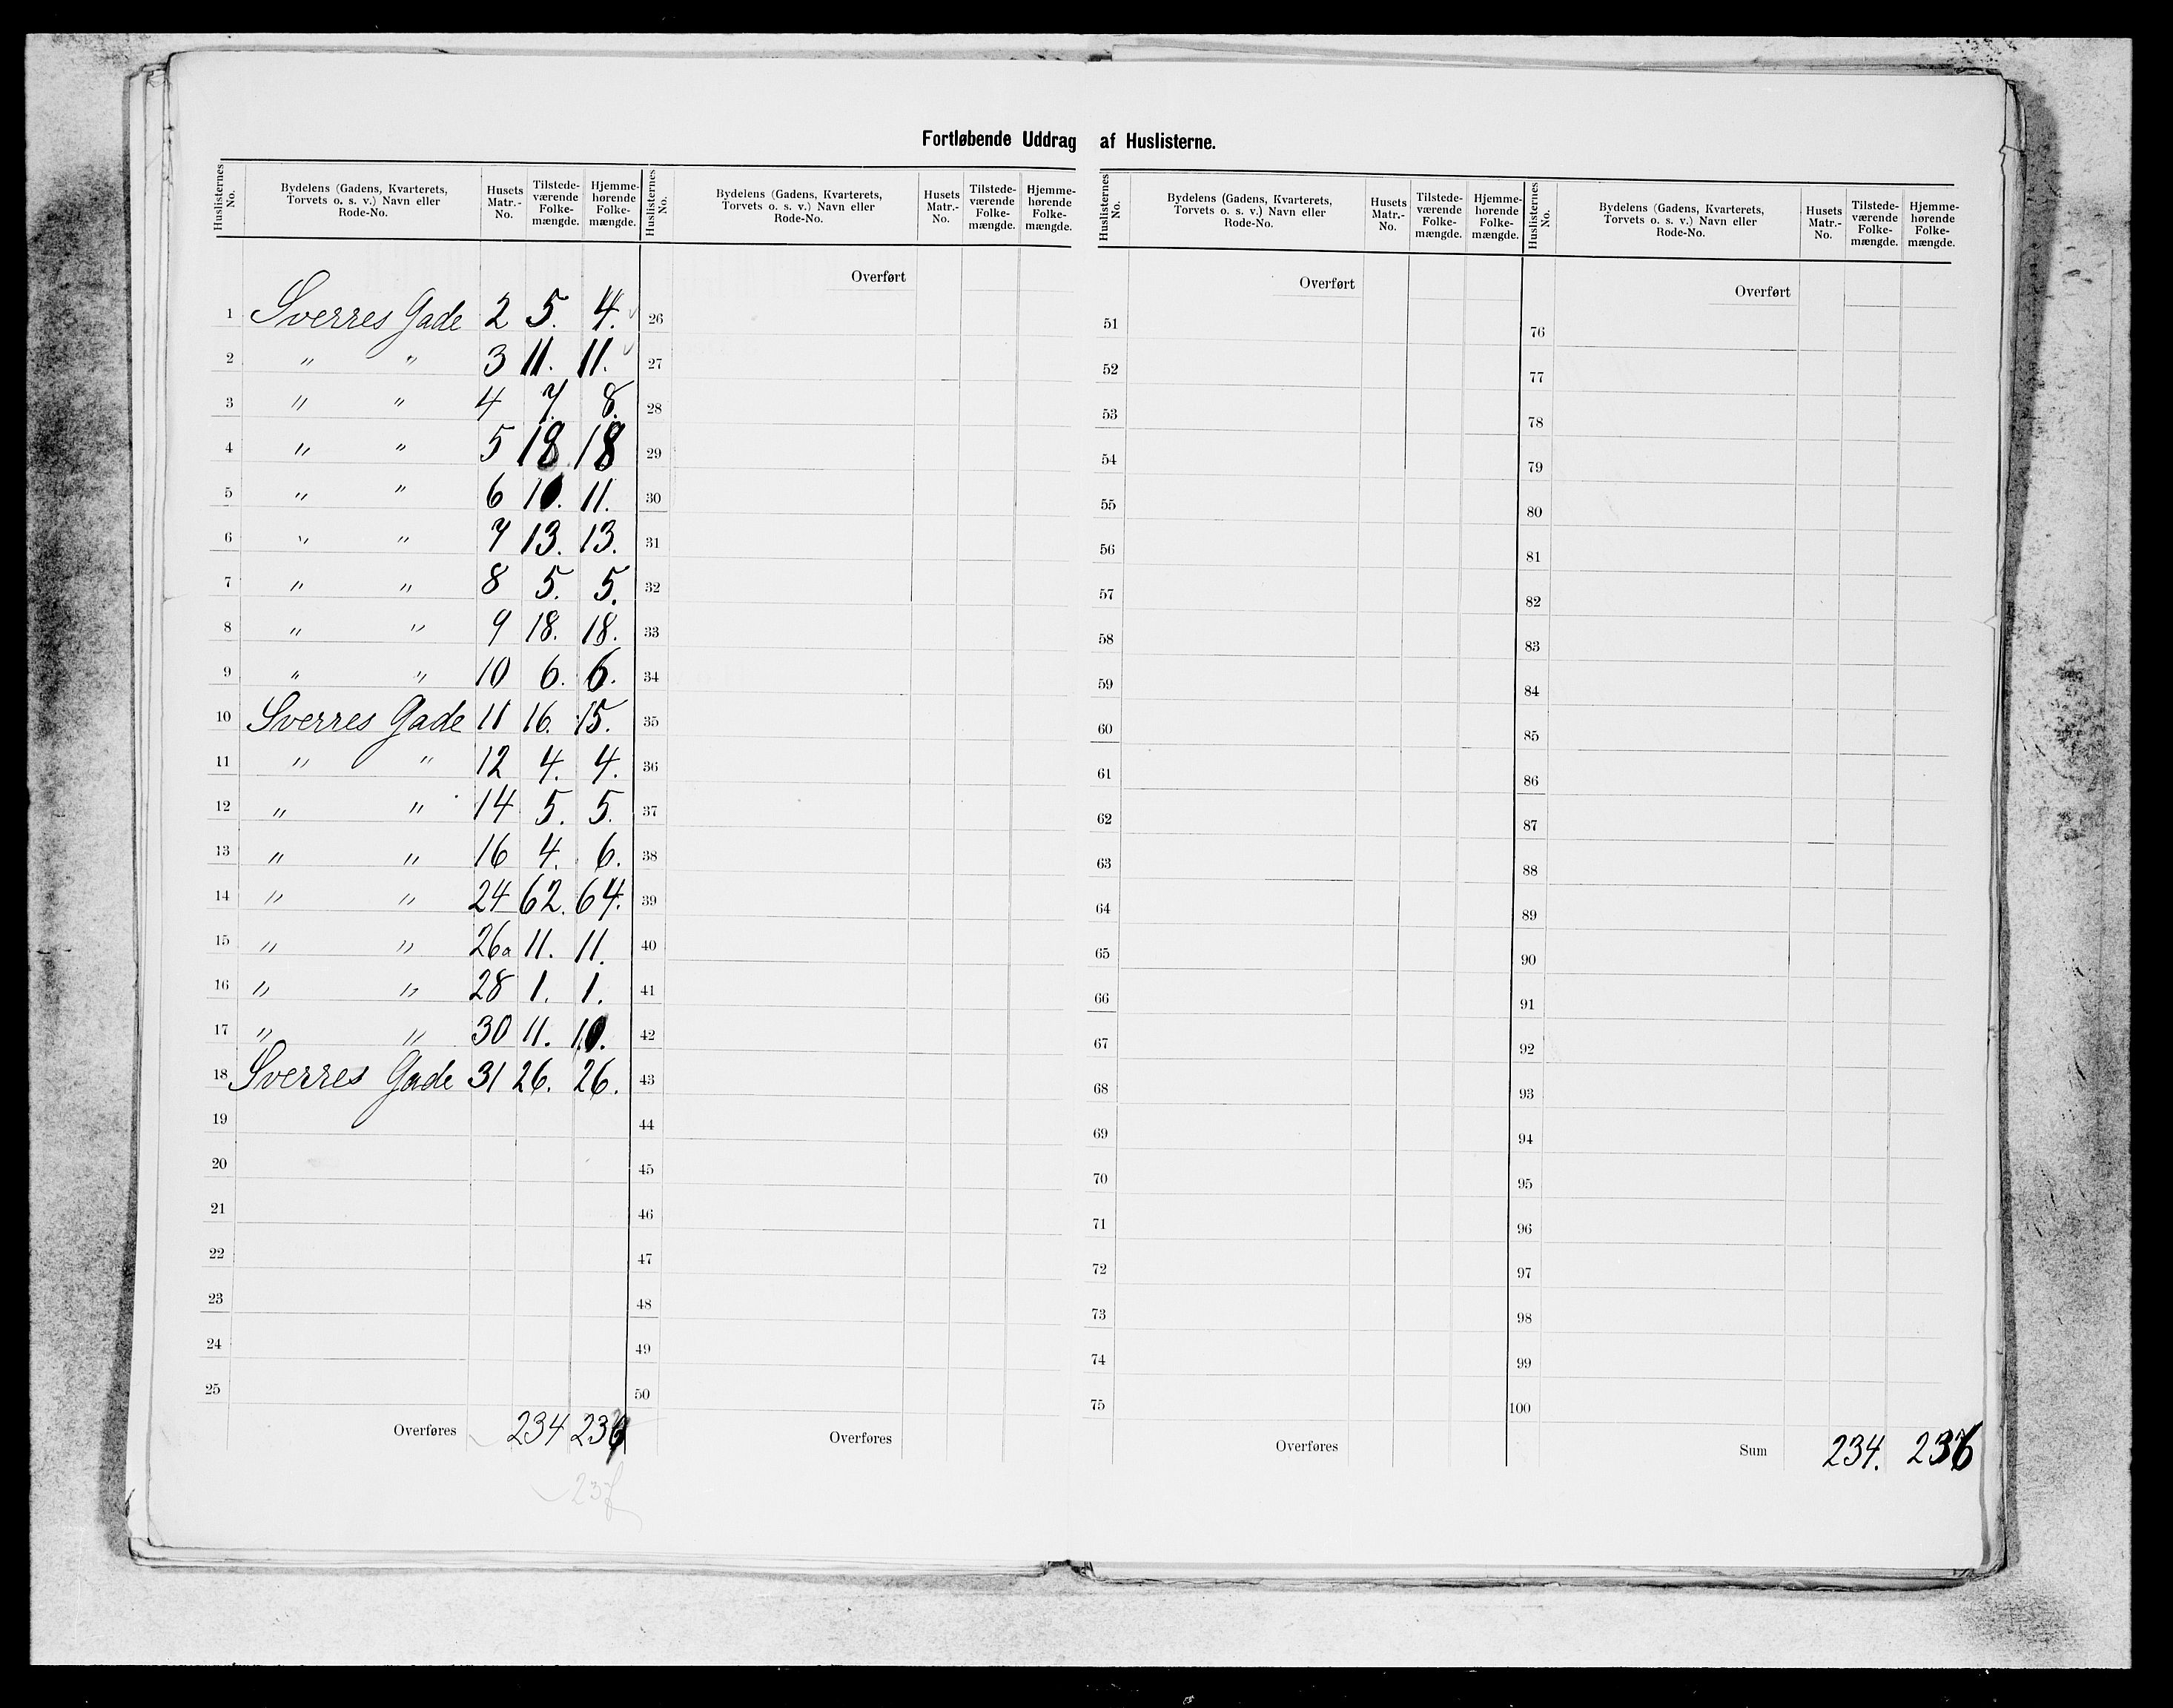 Fortløbende Uddrag af Huslisterne.
Huslisternes No. Bydelens (Gadens, Kvarterets, Torvets o. s. v.) Navn eller Rode-No. Husets Matr.-No. Tilstedeværende Folkemængde. Hjemmehørende Folkemængde.
1 Sverres Gade 2 5. 4.
2 " " 3 11. 11.
3 " " 4 7. 8.
4 " " 5 18 18
5 " " 6 10. 11.
6 " " 7 13. 13.
7 " " 8 5. 5.
8 " " 9 18. 18.
9 " " 10 6. 6.
10 Sverres Gade 11 16. 15.
11 " " 12 4. 4.
12 " " 14 5. 5.
13 " " 16 4. 6.
14 " " 24 62. 64.
15 " " 26a 11. 11.
16 " " 28 1. 1.
17 " " 30 11. 10.
18 Sverres Gade 31 26. 26.
19
20
21
22
23
24
25
Overføres 234 236
237
Huslisternes No. Bydelens (Gadens, Kvarterets, Torvets o. s. v.) Navn eller Rode-No. Husets Matr.-No. Tilstedeværende Folkemængde. Hjemmehørende Folkemængde.
Overført
26
27
28
29
30
31
32
33
34
35
36
37
38
39
40
41
42
43
44
45
46
47
48
49
50
Overføres
Huslisternes No. Bydelens (Gadens, Kvarterets, Torvets o. s. v.) Navn eller Rode-No. Husets Matr.-No. Tilstedeværende Folkemængde. Hjemmehørende Folkemængde.
Overført
51
52
53
54
55
56
57
58
59
60
61
62
63
64
65
66
67
68
69
70
71
72
73
74
75
Overføres
Huslisternes No. Bydelens (Gadens, Kvarterets, Torvets o. s. v.) Navn eller Rode-No. Husets Matr.-No. Tilstedeværende Folkemængde. Hjemmehørende Folkemængde.
Overført
76
77
78
79
80
81
82
83
84
85
86
87
88
89
90
91
92
93
94
95
96
97
98
99
100
Sum 234. 236